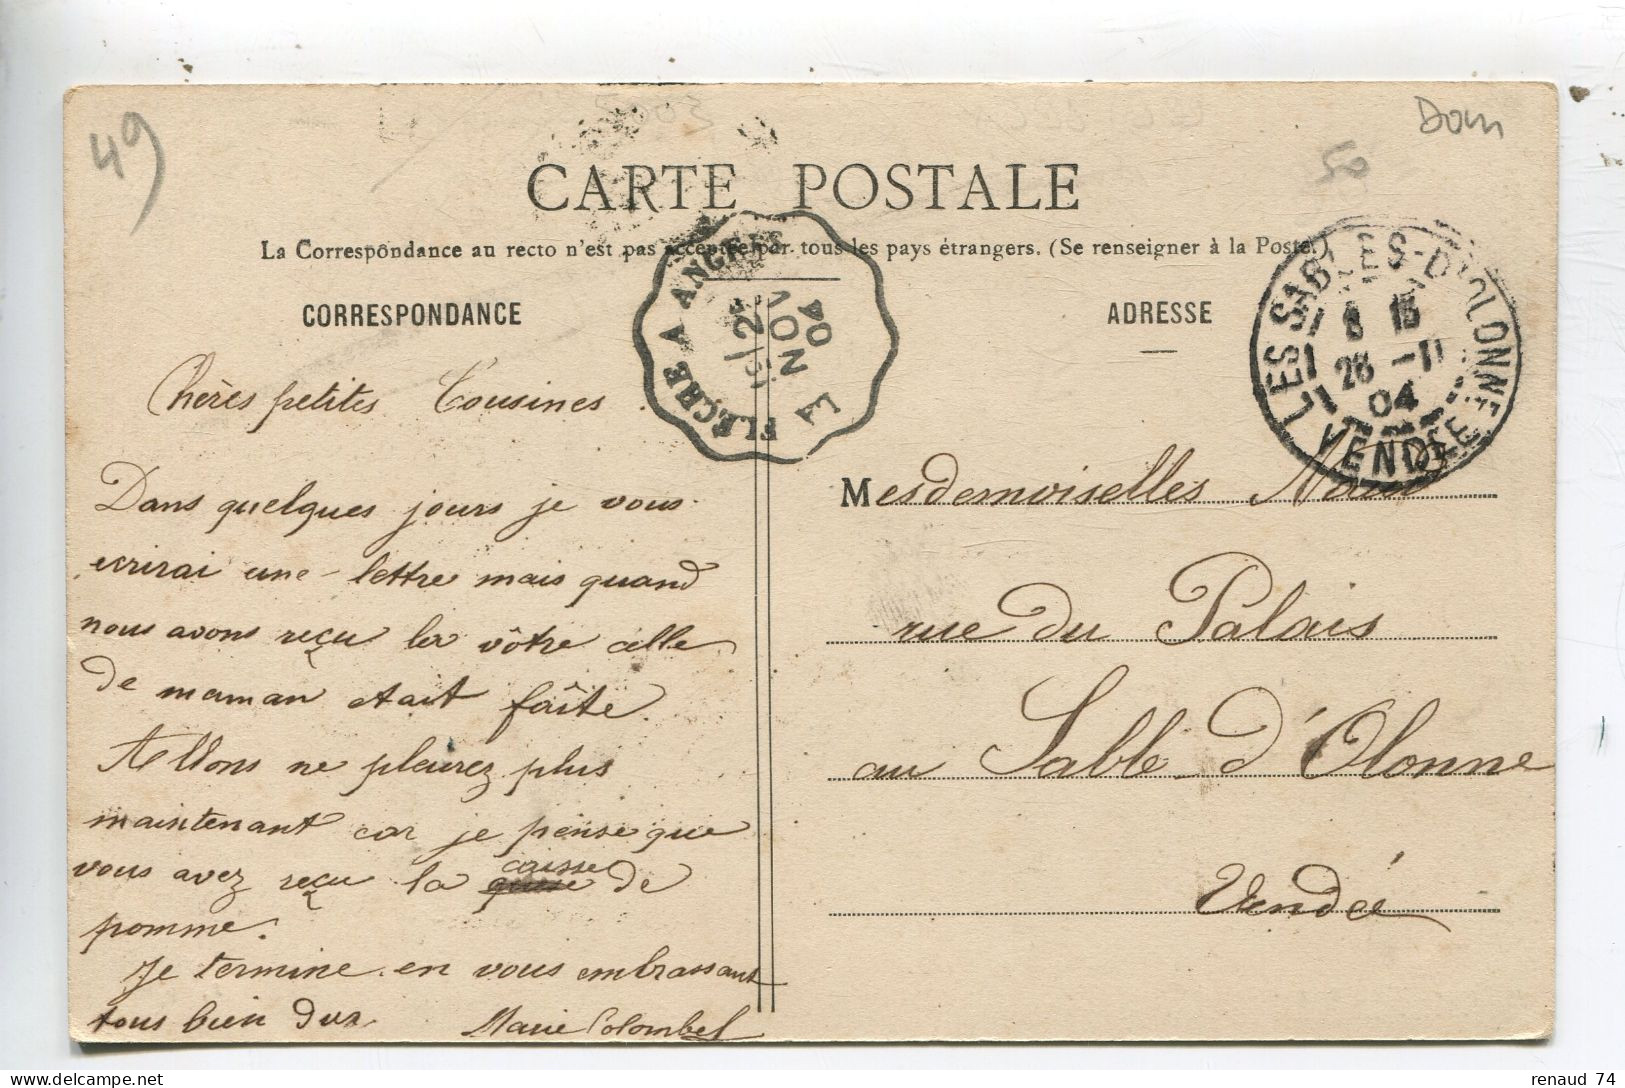 49
Dom
50
CARTE POSTALE
La Correspondance au recto n'est pas acceptée par tous les pays étrangers. (Se renseigner à la Poste.)
CORRESPONDANCE
ADRESSE
LA FLÈCHE A ANGERS
2e
NOV
04
LES SABLES-D'OLONNE
8 15
26 -11
04
VENDÉE
Chères petites Cousines.
Dans quelques jours je vous
ecrirai une lettre mais quand
nous avons reçu la vôtre celle
de maman etait faîte.
Allons ne pleurez plus
maintenant car je pense que
vous avez reçu la caisse de
pomme.
Je termine en vous embrassant
tous bien dur
Marie Colombel
Mesdemoiselles
rue du Palais
au Sable-d'Olonne
Vendée
renaud 74